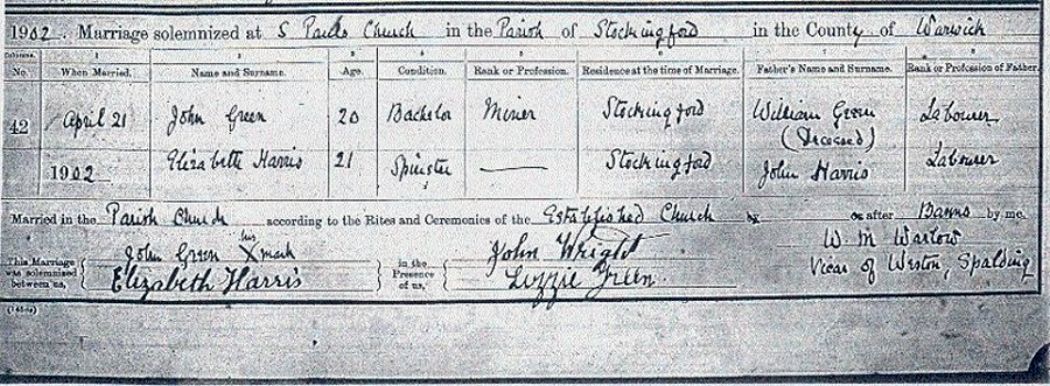 1902. Marriage solemnized at S Pauls Church in the Parish of Stockingford in the County of Warwick
Columns. 1 2 3 4 5 6 7 8
No. When Married. Name and Surname. Age. Condition. Rank or Profession. Residence at the time of Marriage. Father's Name and Surname. Rank or Profession of Father.
42 April 21 John Green 20 Bachelor Miner Stockingford William Green Labourer
(Deceased)
1902 Elizabeth Harris 21 Spinster — Stockingford John Harris Labourer
Married in the Parish Church according to the Rites and Ceremonies of the Established Church by or after Banns by me,
This Marriage was solemnized between us, John Green his X mark in the Presence of us, John Wright W. M. Warlow
Elizabeth Harris Lizzie Green Vicar of Weston, Spalding